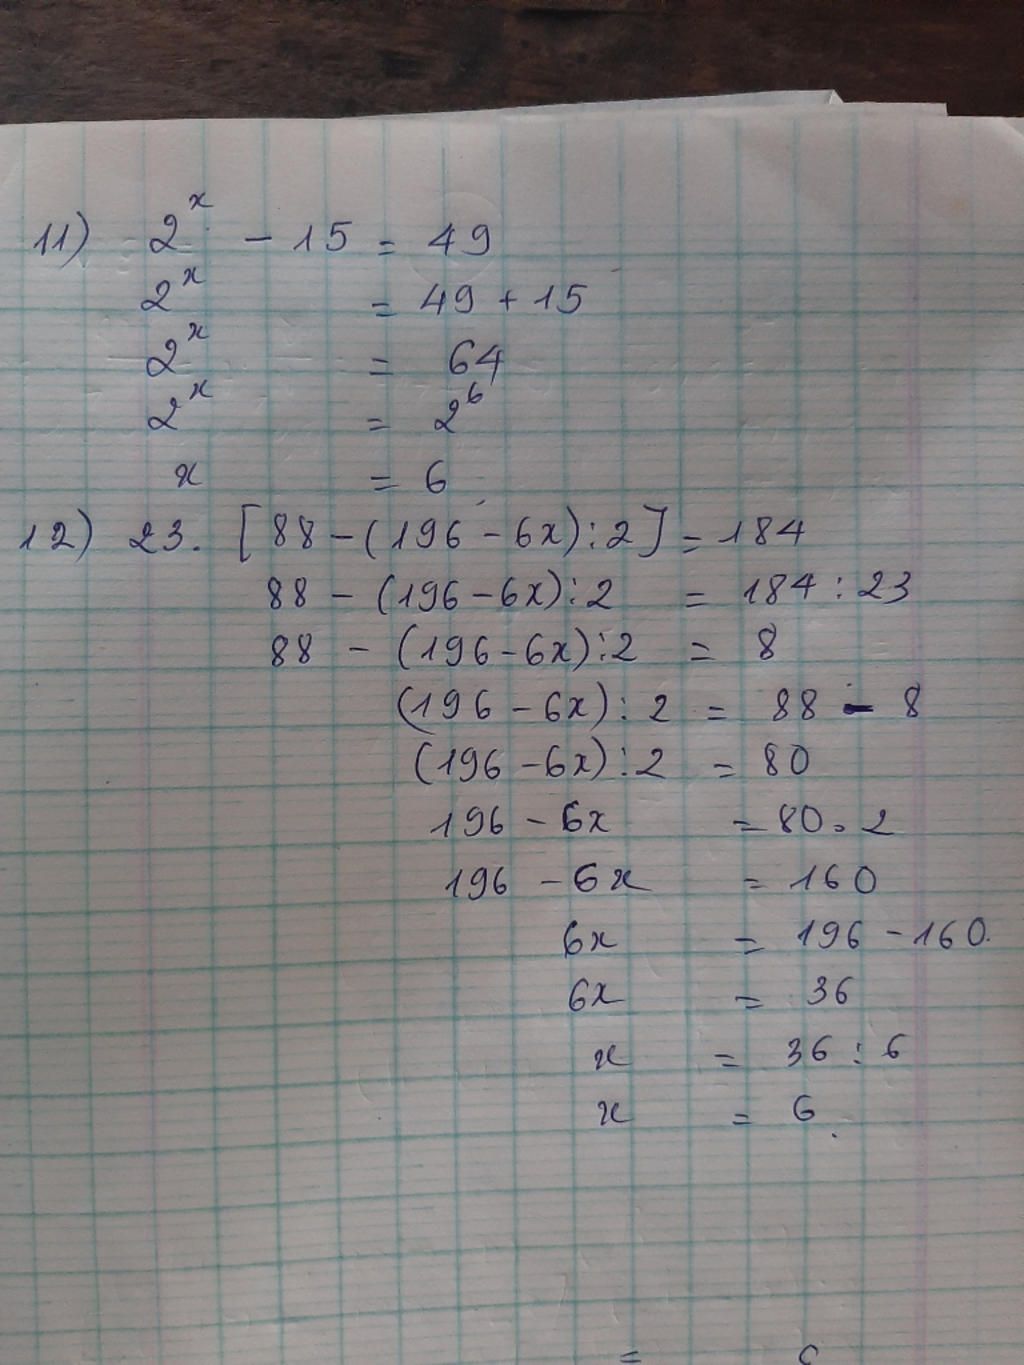 11) 2^x - 15 = 49
2^x = 49 + 15
2^x = 64
2^x = 2^6
x = 6
12) 23. [88 - (196 - 6x) : 2] = 184
88 - (196 - 6x) : 2 = 184 : 23
88 - (196 - 6x) : 2 = 8
(196 - 6x) : 2 = 88 - 8
(196 - 6x) : 2 = 80
196 - 6x = 80 . 2
196 - 6x = 160
6x = 196 - 160.
6x = 36
x = 36 : 6
x = 6.
=